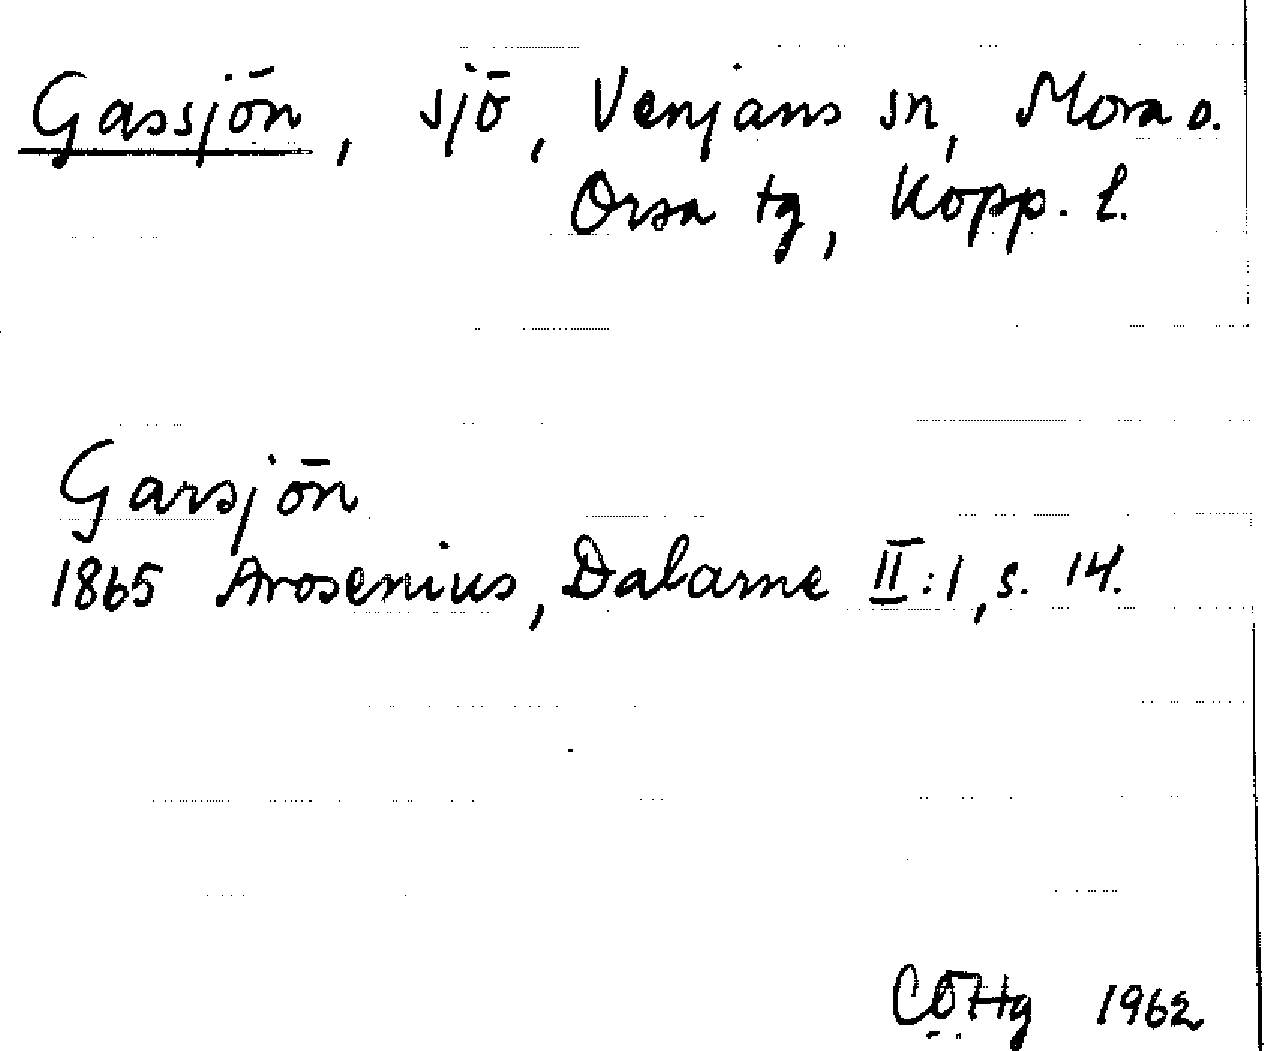 Gassjön, sjö, Venjans sn, Mora o.
Orsa tg, Kopp. l.
Garsjön
1865 Arosenius, Dalarne II:1, s. 14.
CÖHg 1962